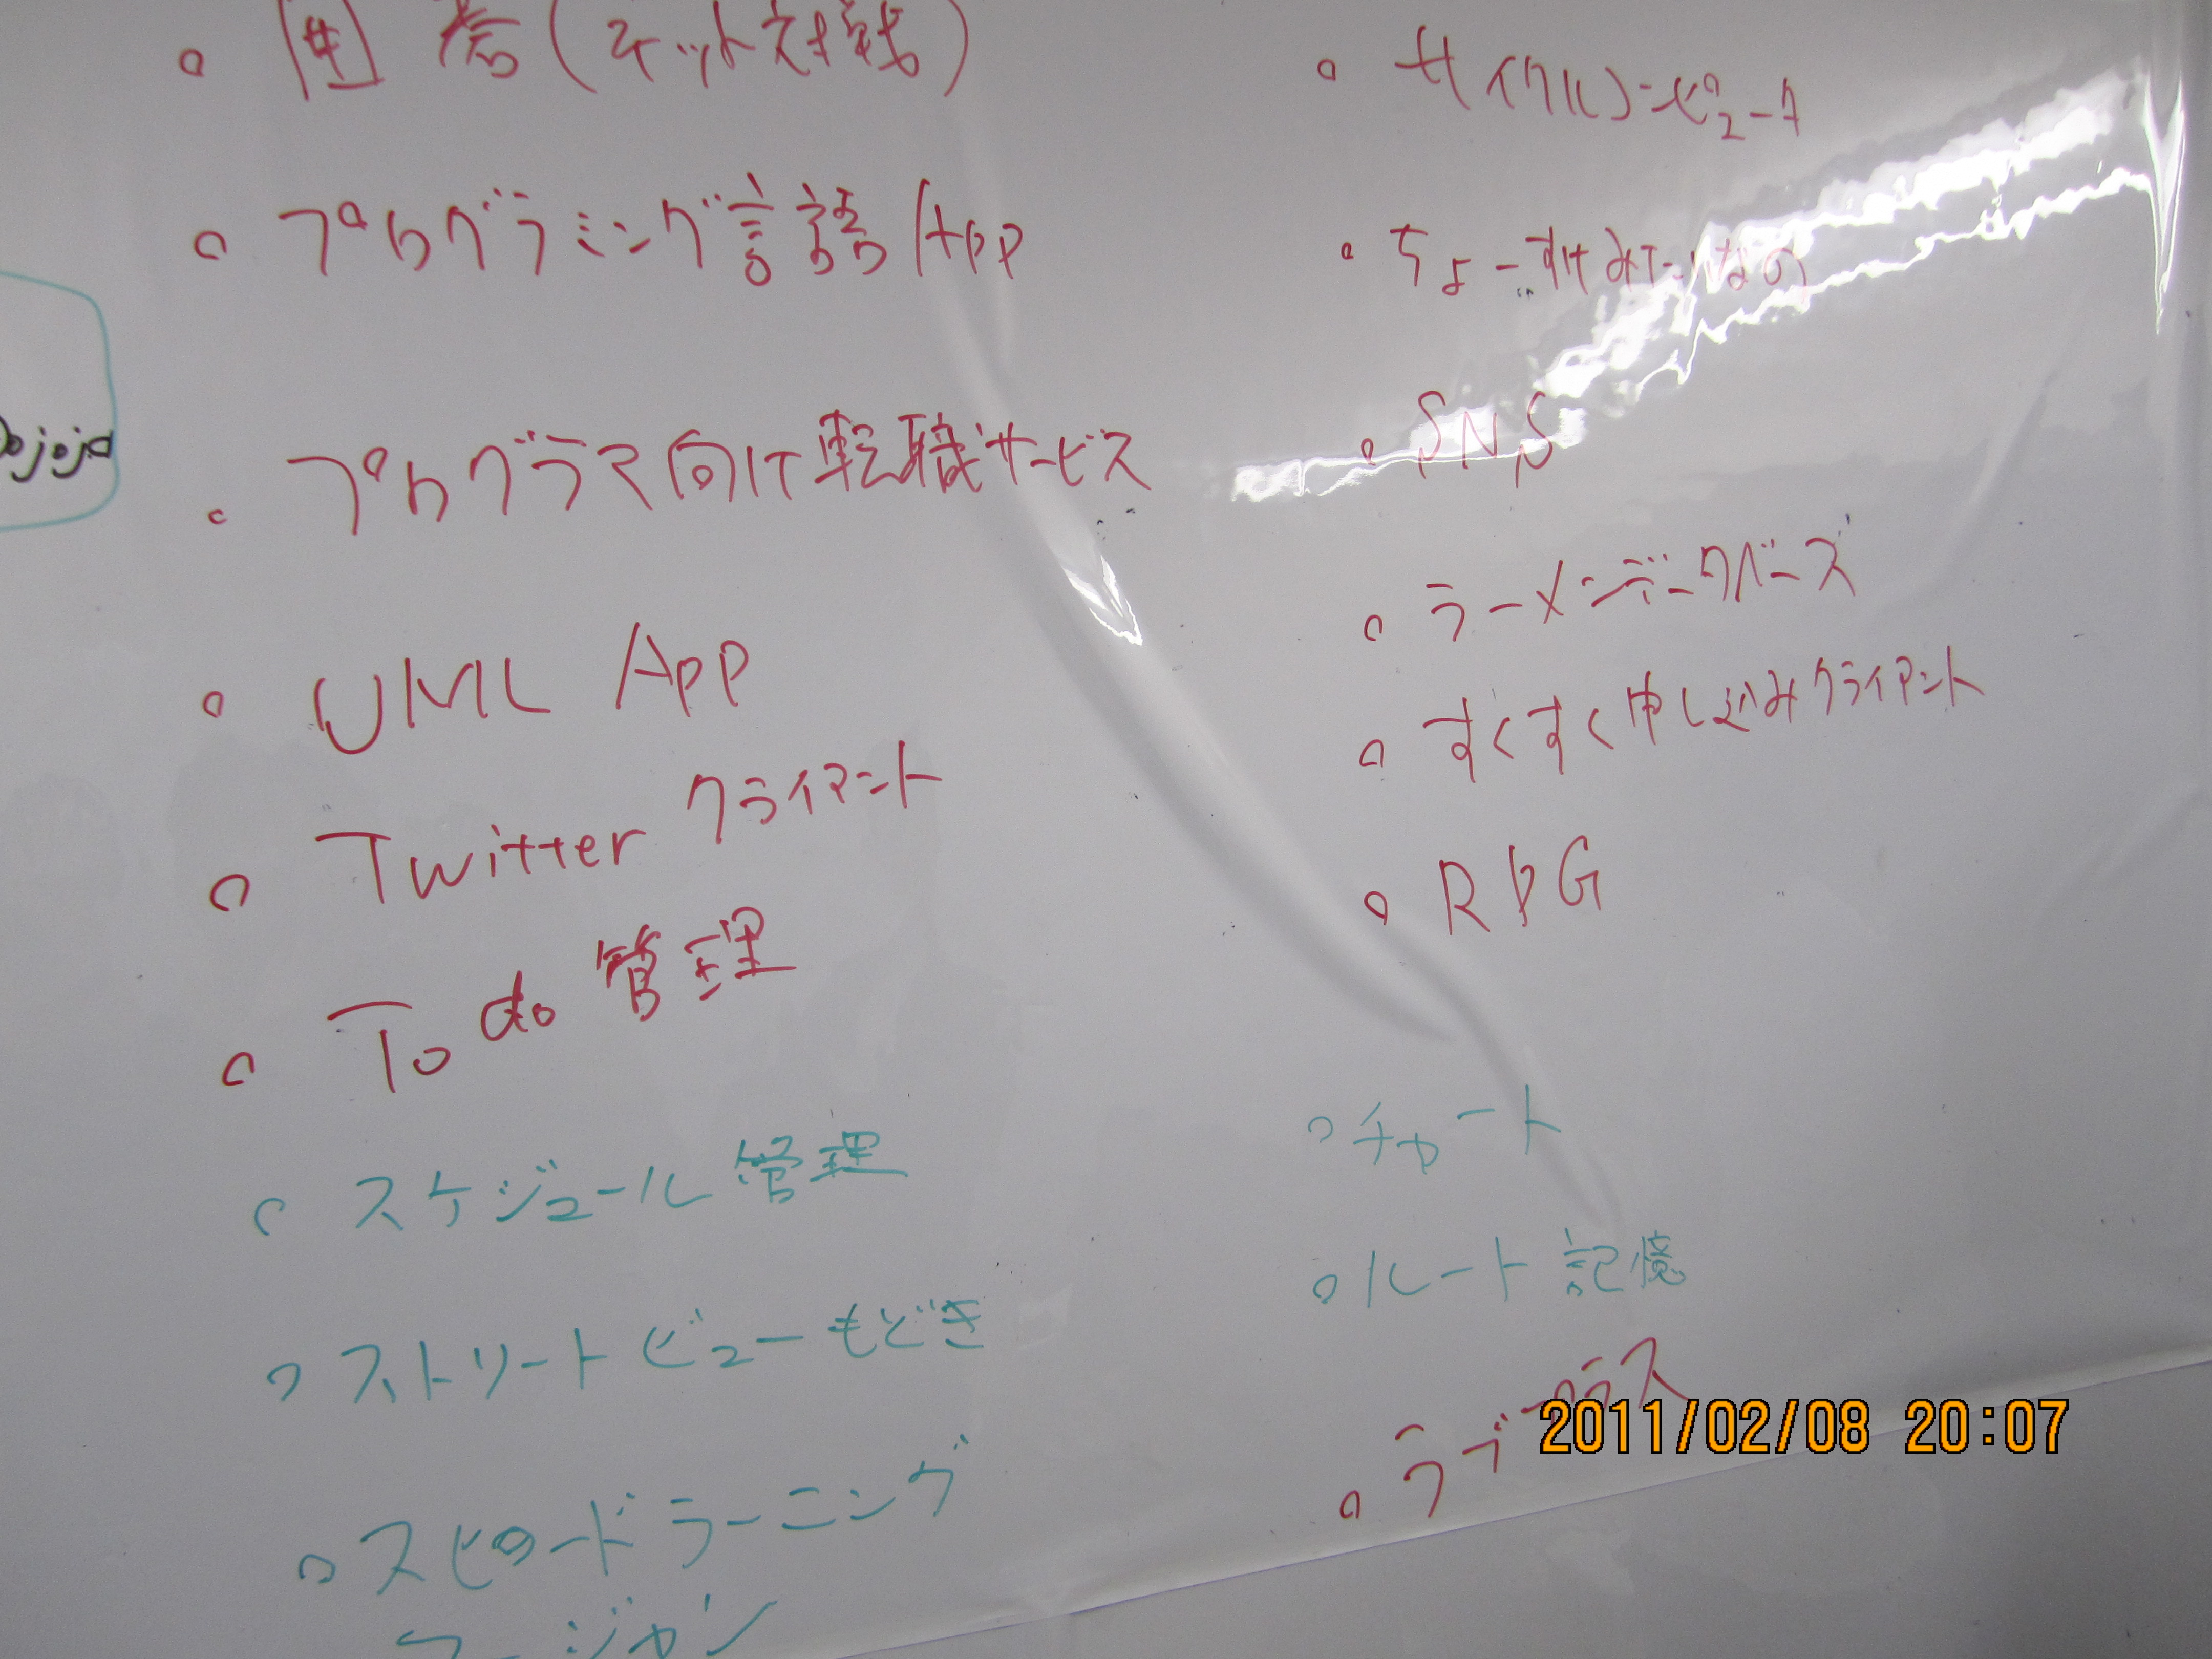 囲碁(ネット対戦)
プログラミング言語App
プログラマ向け転職サービス
UML App
Twitter クライアント
To do 管理
スケジュール管理
ストリートビューもどき
スピードラーニング
ojoja
サイクルコンピュータ
ちょーすけみたいなの
SNS
ラーメンデータベース
すくすく申し込みクライアント
RPG
チャート
ルート記憶
ラブプラス
2011/02/08 20:07